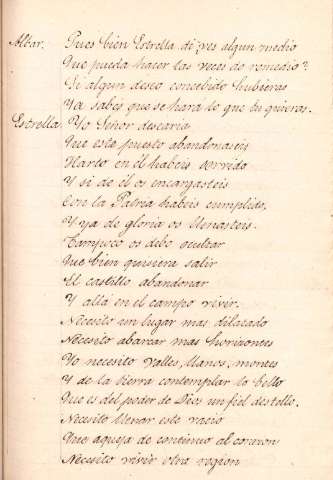 Albar. Pues bien Estrella di ¿ves algun medio
Que pueda hacer las veces de remedio?
Si algun deseo concebido hubieras
Ya sabes que se hará lo que tu quieras.
Estrella. Yo Señor desearia
Que este puesto abandonaseis
Harto en él habeis servido
Y si de él os encargasteis
Con la Patria habeis cumplido,
Y ya de gloria os llenasteis.
Tampoco os debo ocultar
Que bien quisiera salir
El castillo abandonar
Y allá en el campo vivir.
Necesito un lugar mas dilatado
Necesito abarcar mas horizontes
Yo necesito valles, llanos, montes
Y de la tierra contemplar lo bello
Que es del poder de Dios un fiel destello.
Necesito llenar este vacio
Que aqueja de continuo al corazon
Necesito vivir otra region